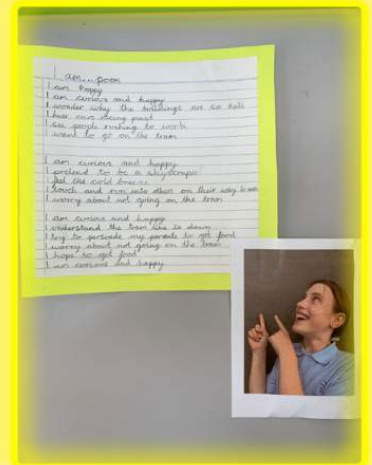 I am... poem
I am Poppy
I am curious and happy
I wonder why the buildings are so tall
I hear cars racing past
I see people rushing to work
I want to go on the train
I am curious and happy
I pretend to be a skyscraper
I feel the cold breeze
I touch and run into others on their way to work
I worry about not going on the train
I am curious and happy
I understand the tram line is down
I try to persuade my parents to get food
I worry about not going on the train
I hope to get food
I am curious and happy